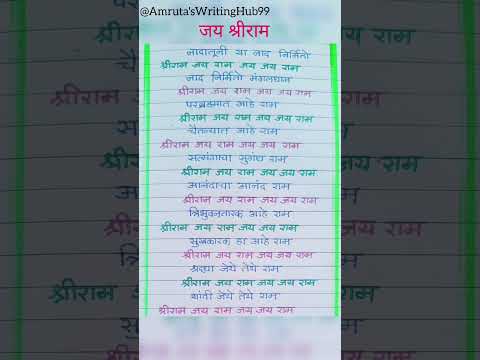 @Amruta'sWritingHub99
जय श्रीराम
नादातूनी या नाद निर्मितो
श्रीराम जय राम जय जय राम
नाद निर्मितो मंगलधाम
श्रीराम जय राम जय जय राम
परब्रह्मात आहे राम
श्रीराम जय राम जय जय राम
चैतन्यात आहे राम
श्रीराम जय राम जय जय राम
सत्संगाचा सुगंध राम
श्रीराम जय राम जय जय राम
आनंदाचा आनंद राम
श्रीराम जय राम जय जय राम
त्रिभुवनतारक आहे राम
श्रीराम जय राम जय जय राम
सुखकारक हा आहे राम
श्रीराम जय राम जय जय राम
श्रध्दा जेथे तेथे राम
श्रीराम जय राम जय जय राम
शांती जेथे तेथे राम
श्रीराम जय राम जय जय राम